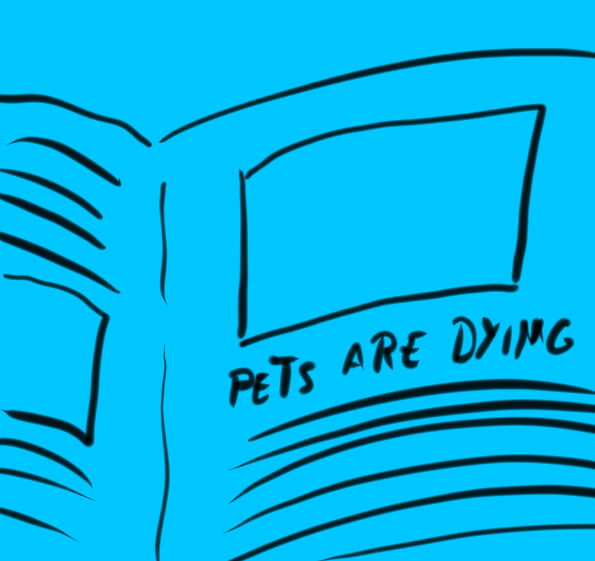 PETS ARE DYING